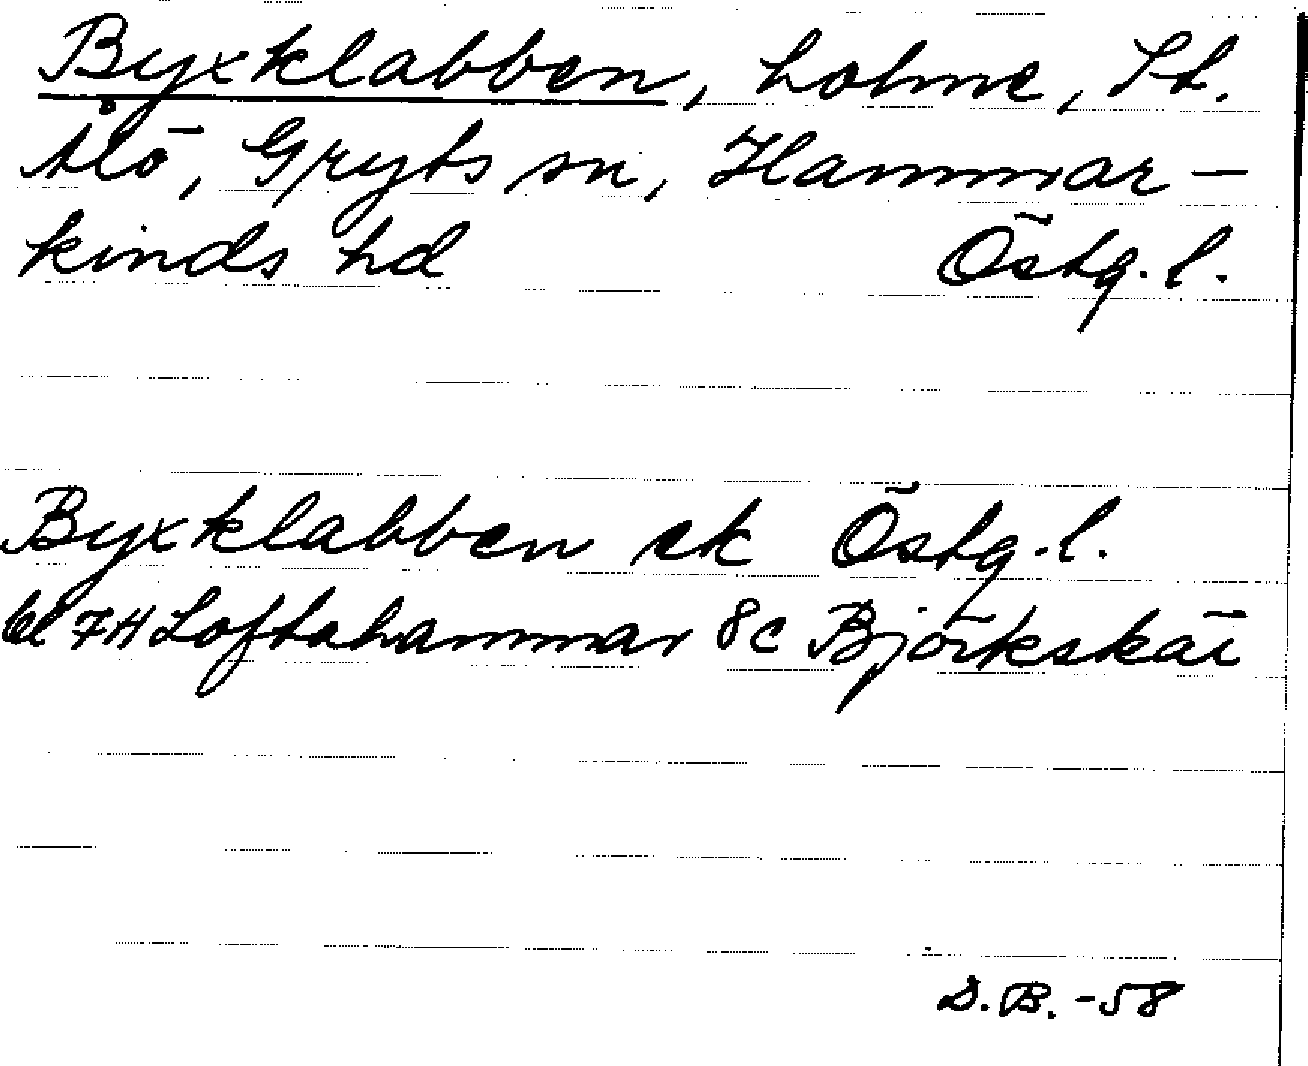 Byxklabben, holme, St.
Ålö, Gryts sn, Hammar-
kinds hd Östg. l.
Byxklabben ek Östg. l.
bl 7H Loftahammar 8c Björkskär
D.B. -58